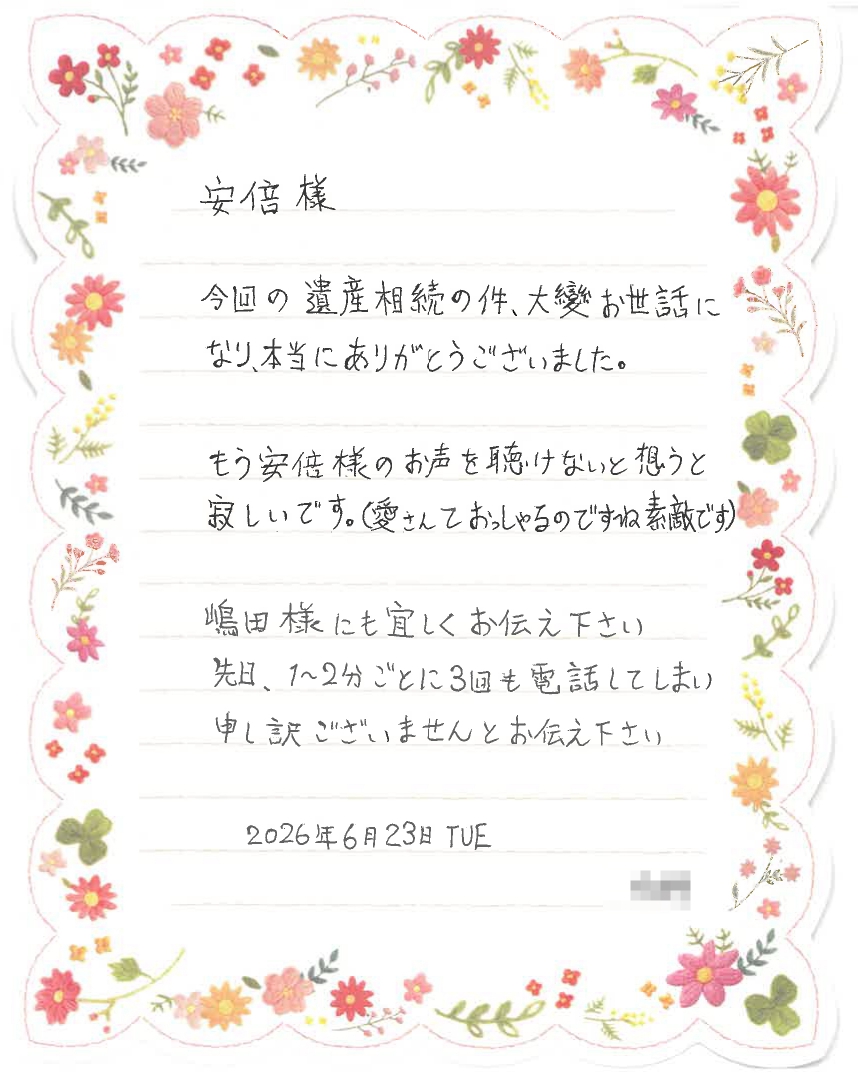 安倍様
今回の遺産相続の件、大變お世話に
なり、本当にありがとうございました。
もう安倍様のお声を聴けないと想うと
寂しいです。(愛さんておっしゃるのですね素敵です)
嶋田様にも宜しくお伝え下さい
先日、1～2分ごとに3回も電話してしまい
申し訳ございませんとお伝え下さい
2026年6月23日 TUE